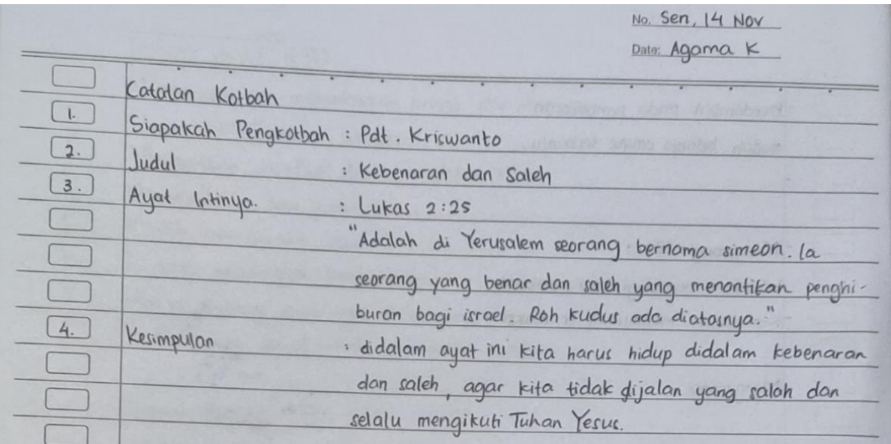 No. Sen, 14 Nov
Date: Agama K
Catatan Kotbah
1. Siapakah Pengkotbah : Pdt. Kriswanto
2. Judul : Kebenaran dan Saleh
3. Ayat Intinya. : Lukas 2:25
"Adalah di Yerusalem seorang bernama simeon. Ia
seorang yang benar dan saleh yang menantikan penghi-
buran bagi israel. Roh kudus ada diatasnya."
4. Kesimpulan : didalam ayat ini kita harus hidup didalam kebenaran
dan saleh, agar kita tidak dijalan yang salah dan
selalu mengikuti Tuhan Yesus.